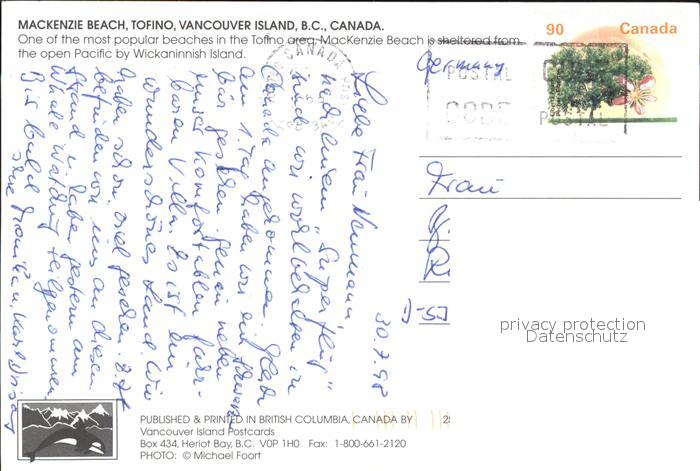 MACKENZIE BEACH, TOFINO, VANCOUVER ISLAND, B.C., CANADA.
One of the most popular beaches in the Tofino area, MacKenzie Beach is sheltered from
the open Pacific by Wickaninnish Island.
90 Canada
CANADA
POSTAL
CODE
POSTAL
Germany
Frau
D-53
privacy protection
Datenschutz
30.7.98
Liebe Frau Neumann,
nach einem "Superflug"
sind wir wohlbehalten in
Canada angekommen. Gleich
am 1. Tag haben wir ein
Bär gesehen neben
unser komfortablen
baren Villa. Es ist ein
wunderschönes Land. Wir
haben schon viel gesehen. Z.Zt.
befinden wir uns an diesem
Strand u. haben gestern am
Whale Watching teilgenommen.
Bis bald
Ihre
PUBLISHED & PRINTED IN BRITISH COLUMBIA, CANADA BY
Vancouver Island Postcards
Box 434, Heriot Bay, B.C. V0P 1H0 Fax: 1-800-661-2120
PHOTO: © Michael Foort